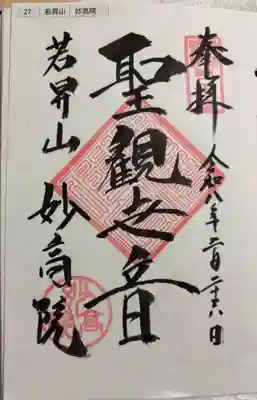 27 若昇山 妙高院
奉拝 令和八年二月二十八日
聖観世音
若昇山 妙高院